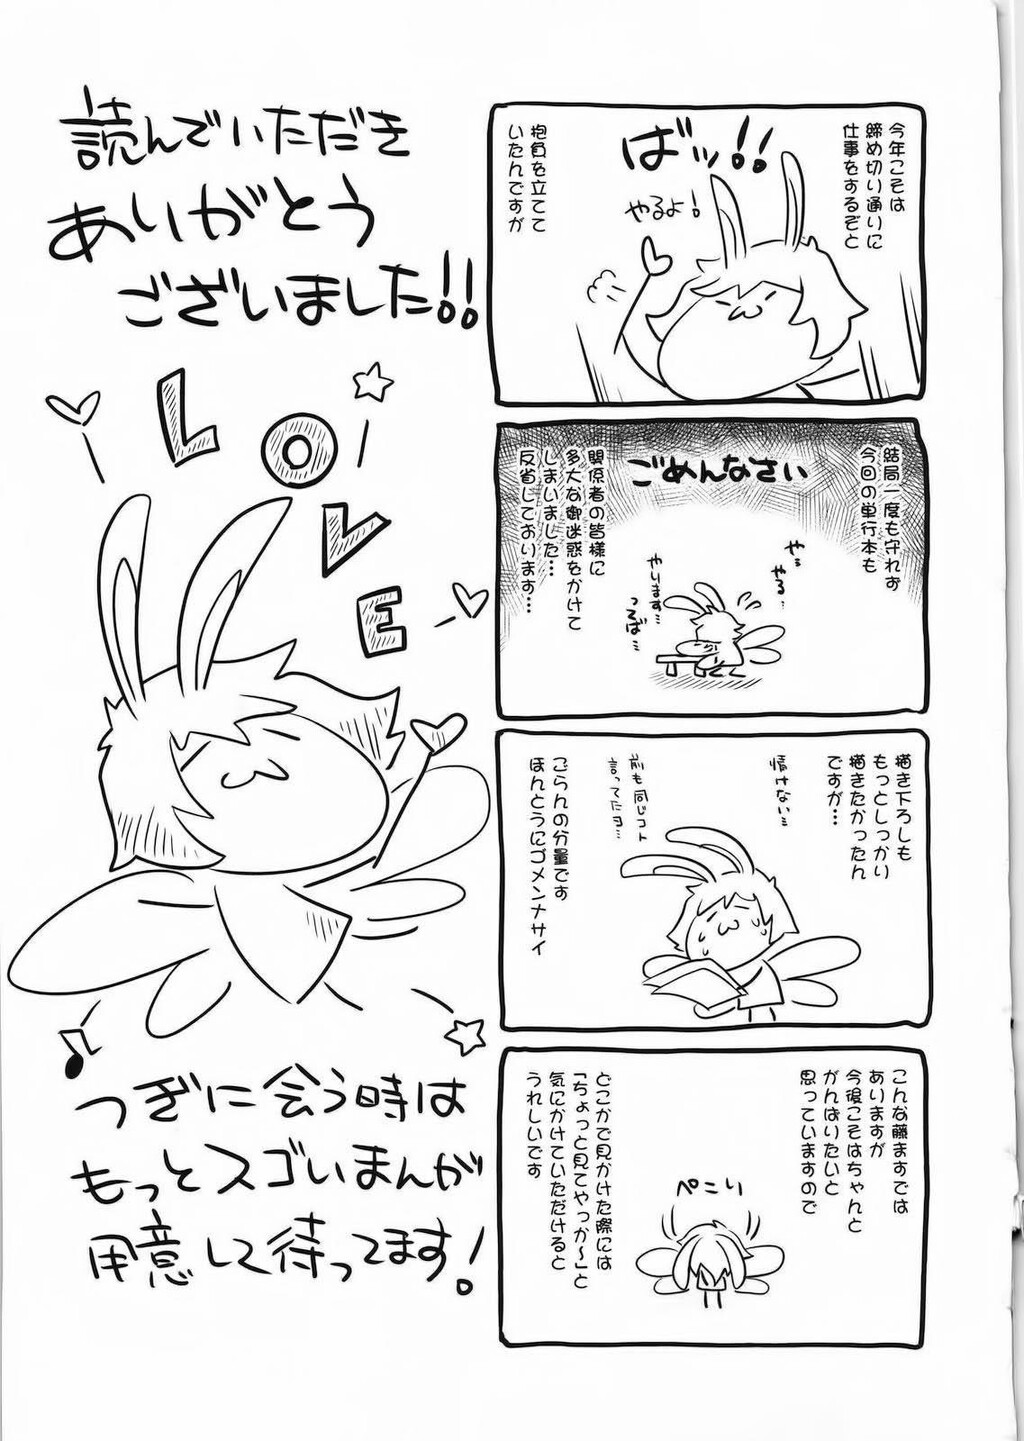 今年こそは
締め切り通りに
仕事をするぞと
ばッ!!
やるよ!
抱負を立てて
いたんですが
結局一度も守れず
今回の単行本も
ごめんなさい
関係者の皆様に
多大な御迷惑をかけて
しまいました…
反省しております…
やる…
やります…
つるば…
描き下ろしも
もっとしっかり
描きたかったん
ですが…
情けない…
前も同じコト
言ってたヨ…
ごらんの分量です
ほんとうにゴメンナサイ
こんな藤ますでは
ありますが
今後こそはちゃんと
がんばりたいと
思っていますので
ぺこり
どこかで見かけた際には
「ちょっと見てやっか〜」と
気にかけていただけると
うれしいです
読んでいただき
ありがとう
ございました!!
LOVE
つぎに会う時は
もっとスゴいまんが
用意して待ってます!